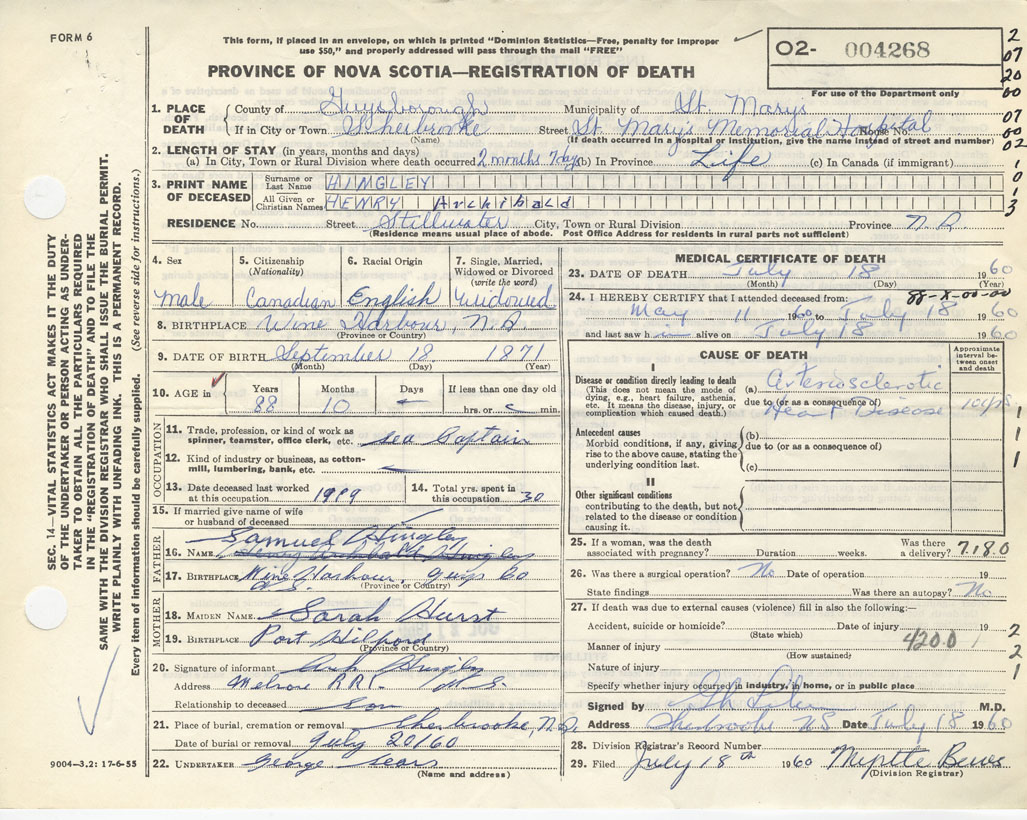 FORM 6
This form, if placed in an envelope, on which is printed "Dominion Statistics—Free, penalty for improper
use $50," and properly addressed will pass through the mail "FREE"
O2- 004268
For use of the Department only
2
07
20
00
07
00
02
1
0
1
3
PROVINCE OF NOVA SCOTIA—REGISTRATION OF DEATH
1. PLACE OF DEATH
County of Guysborough Municipality of St. Mary's
If in City or Town Sherbrooke Street St. Mary's Memorial Hospital House No.
(Name) (If death occurred in a hospital or institution, give the name instead of street and number)
2. LENGTH OF STAY (in years, months and days)
(a) In City, Town or Rural Division where death occurred 2 months 7 days (b) In Province Life (c) In Canada (if immigrant)
3. PRINT NAME OF DECEASED
Surname or Last Name HINGLEY
All Given or Christian Names HENRY Archibald
RESIDENCE No. Street Stillwater City, Town or Rural Division Province N.S.
(Residence means usual place of abode. Post Office Address for residents in rural parts not sufficient)
4. Sex
Male
5. Citizenship (Nationality)
Canadian
6. Racial Origin
English
7. Single, Married, Widowed or Divorced (write the word)
Widowed
8. BIRTHPLACE Wine Harbour, N.S.
(Province or Country)
9. DATE OF BIRTH September 18 1871
(Month) (Day) (Year)
10. AGE in Years Months Days If less than one day old
88 10 hrs. or min.
OCCUPATION
11. Trade, profession, or kind of work as spinner, teamster, office clerk, etc. Sea Captain
12. Kind of industry or business, as cotton-mill, lumbering, bank, etc.
13. Date deceased last worked at this occupation
14. Total yrs. spent in this occupation 30
15. If married give name of wife or husband of deceased
FATHER
Samuel Hingley
16. NAME Henry Archibald Hingley
17. BIRTHPLACE Wine Harbour, Guys Co
N.S. (Province or Country)
MOTHER
18. MAIDEN NAME Sarah Hurst
19. BIRTHPLACE Port Hilford
(Province or Country)
20. Signature of informant Arch Hingley
Address Melrose RR1 N.S.
Relationship to deceased Son
21. Place of burial, cremation or removal Sherbrooke, N.S.
Date of burial or removal July 20/60
22. UNDERTAKER George Sears
(Name and address)
MEDICAL CERTIFICATE OF DEATH
23. DATE OF DEATH July 18 1960
(Month) (Day) (Year)
88-X-00-00
24. I HEREBY CERTIFY that I attended deceased from:
May 11 1960 to July 18 1960
and last saw h alive on July 18 1960
CAUSE OF DEATH
Approximate interval between onset and death
I
Disease or condition directly leading to death
(This does not mean the mode of dying, e.g., heart failure, asthenia, etc. It means the disease, injury, or complication which caused death.)
(a) Arteriosclerotic
due to (or as a consequence of)
Heart Disease 10 yrs
Antecedent causes
Morbid conditions, if any, giving rise to the above cause, stating the underlying condition last.
(b)
due to (or as a consequence of)
(c)
1
1
1
II
Other significant conditions
contributing to the death, but not related to the disease or condition causing it.
25. If a woman, was the death associated with pregnancy? Duration weeks. Was there a delivery? 7.18.0
26. Was there a surgical operation? No Date of operation 19
State findings Was there an autopsy? No
27. If death was due to external causes (violence) fill in also the following:—
Accident, suicide or homicide? Date of injury 19
(State which)
Manner of injury 420.0
(How sustained)
Nature of injury
2
2
1
Specify whether injury occurred in industry, in home, or in public place
Signed by M.D.
Address Sherbrooke NS Date July 18 1960
28. Division Registrar's Record Number
29. Filed July 18th 1960 Myrtle
(Division Registrar)
SEC. 14—VITAL STATISTICS ACT MAKES IT THE DUTY
OF THE UNDERTAKER OR PERSON ACTING AS UNDER-
TAKER TO OBTAIN ALL THE PARTICULARS REQUIRED
IN THE "REGISTRATION OF DEATH" AND TO FILE THE
SAME WITH THE DIVISION REGISTRAR WHO SHALL ISSUE THE BURIAL PERMIT.
WRITE PLAINLY WITH UNFADING INK. THIS IS A PERMANENT RECORD.
Every item of information should be carefully supplied. (See reverse side for instructions.)
9004—3.2: 17-6-55